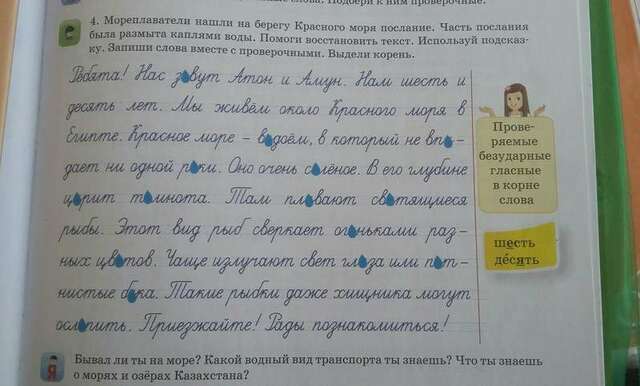 слова. Подбери к ним проверочные.
4. Мореплаватели нашли на берегу Красного моря послание. Часть послания
была размыта каплями воды. Помоги восстановить текст. Используй подсказ-
ку. Запиши слова вместе с проверочными. Выдели корень.
Ребята! Нас з вут Атон и Амун. Нам шесть и
десять лет. Мы живём около Красного моря в
Египте. Красное море – в доём, в который не вп -
дает ни одной р ки. Оно очень с лёное. В его глубине
ц рит т мнота. Там пл вают св тящиеся
рыбы. Этот вид рыб сверкает ог ньками раз-
ных цв тов. Чаще излучают свет гл за или п т-
нистые б ка. Такие рыбки даже хищника могут
осл пить. Приезжайте! Рады познакомиться!
Прове-
ряемые
безударные
гласные
в корне
слова
шесть
де́сять
Я
Бывал ли ты на море? Какой водный вид транспорта ты знаешь? Что ты знаешь
о морях и озёрах Казахстана?